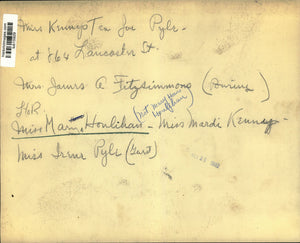 Miss Kenney Tea for Pyle
at 864 Lancaster St.
Mrs. James A Fitzsimmons (Pouring)
L&R.
(Not Miss Mary Houlihan)
Miss Mary Houlihan - Miss Mardi Kenney
Miss Irene Pyle (Guest)